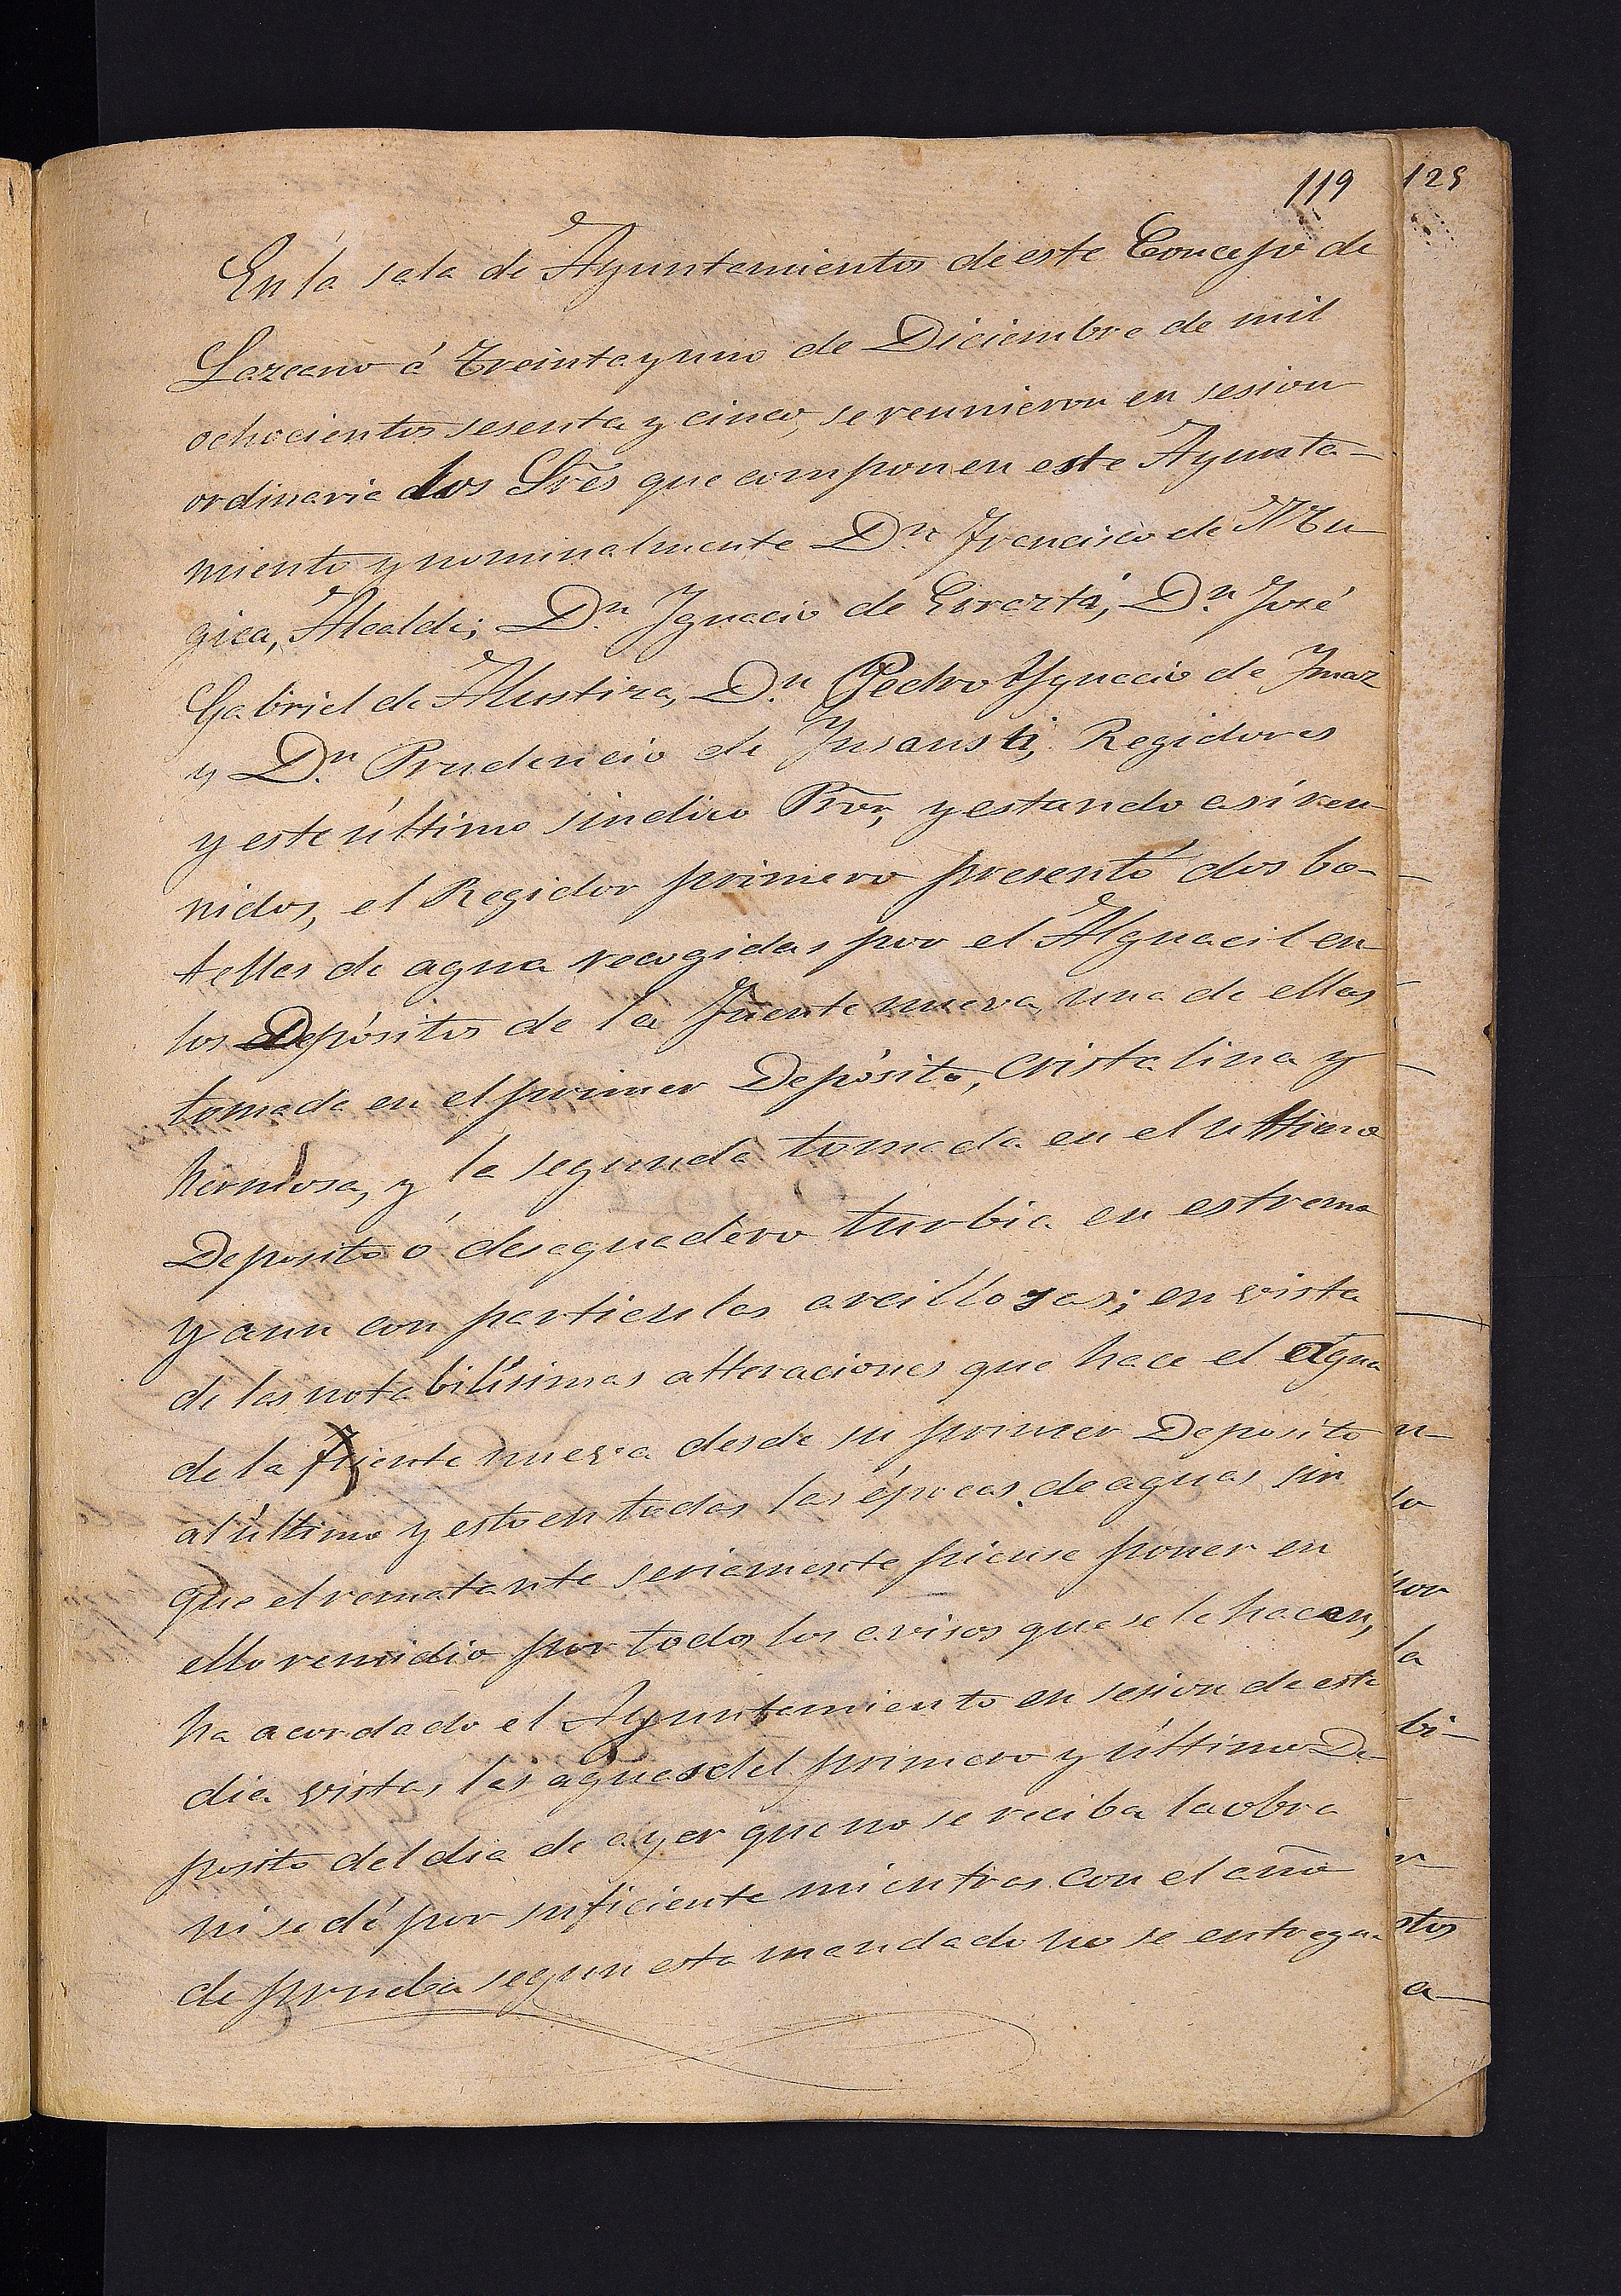 119
125
En la sala de Ayuntamientos de este Concejo de
Lazcano á treinta y uno de Diciembre de mil
ochocientos sesenta y cinco, se reunieron en sesion
ordinaria los Sres que componen este Ayunta-
miento y nominalmente Dn. Francisco de Mu-
gica, Alcalde; Dn. Ygnacio de Eirazta, Dn. José
Gabriel de Alustiza, Dn. Pedro Ygnacio de Ymaz
y Dn. Prudencio de Ynsausti, Regidores
y este último sindico Pror, y estando asi reu-
nidos, el Regidor primero presentó dos bo-
tellas de agua recogidas por el Alguacil en
los Depósitos de la Fuente nueva, una de ellas
tomada en el primer Depósito, cristalina y
hermosa, y la segunda tomada en el ultimo
Deposito ó desaguadero turbia en estremo
y aun con particulas arcillosas; en vista
de las notabilísimas alteraciones que hace el Agua
de la Fuente nueva desde su primer Deposito
al último y esto en todas las épocas de aguas sin
que el rematante seriamente piense poner en
ello remidio por todos los avisos que se le hacen,
ha acordado el Ayuntamiento en sesion de este
dia vistas las aguas del primero y último De-
posito del dia de ayer que no se reciba la obra
ni se dé por suficiente mientras con el año
de prueba segun esta mandado no se entregue
n-
lo
por
la
bi-
r-
stos
a-